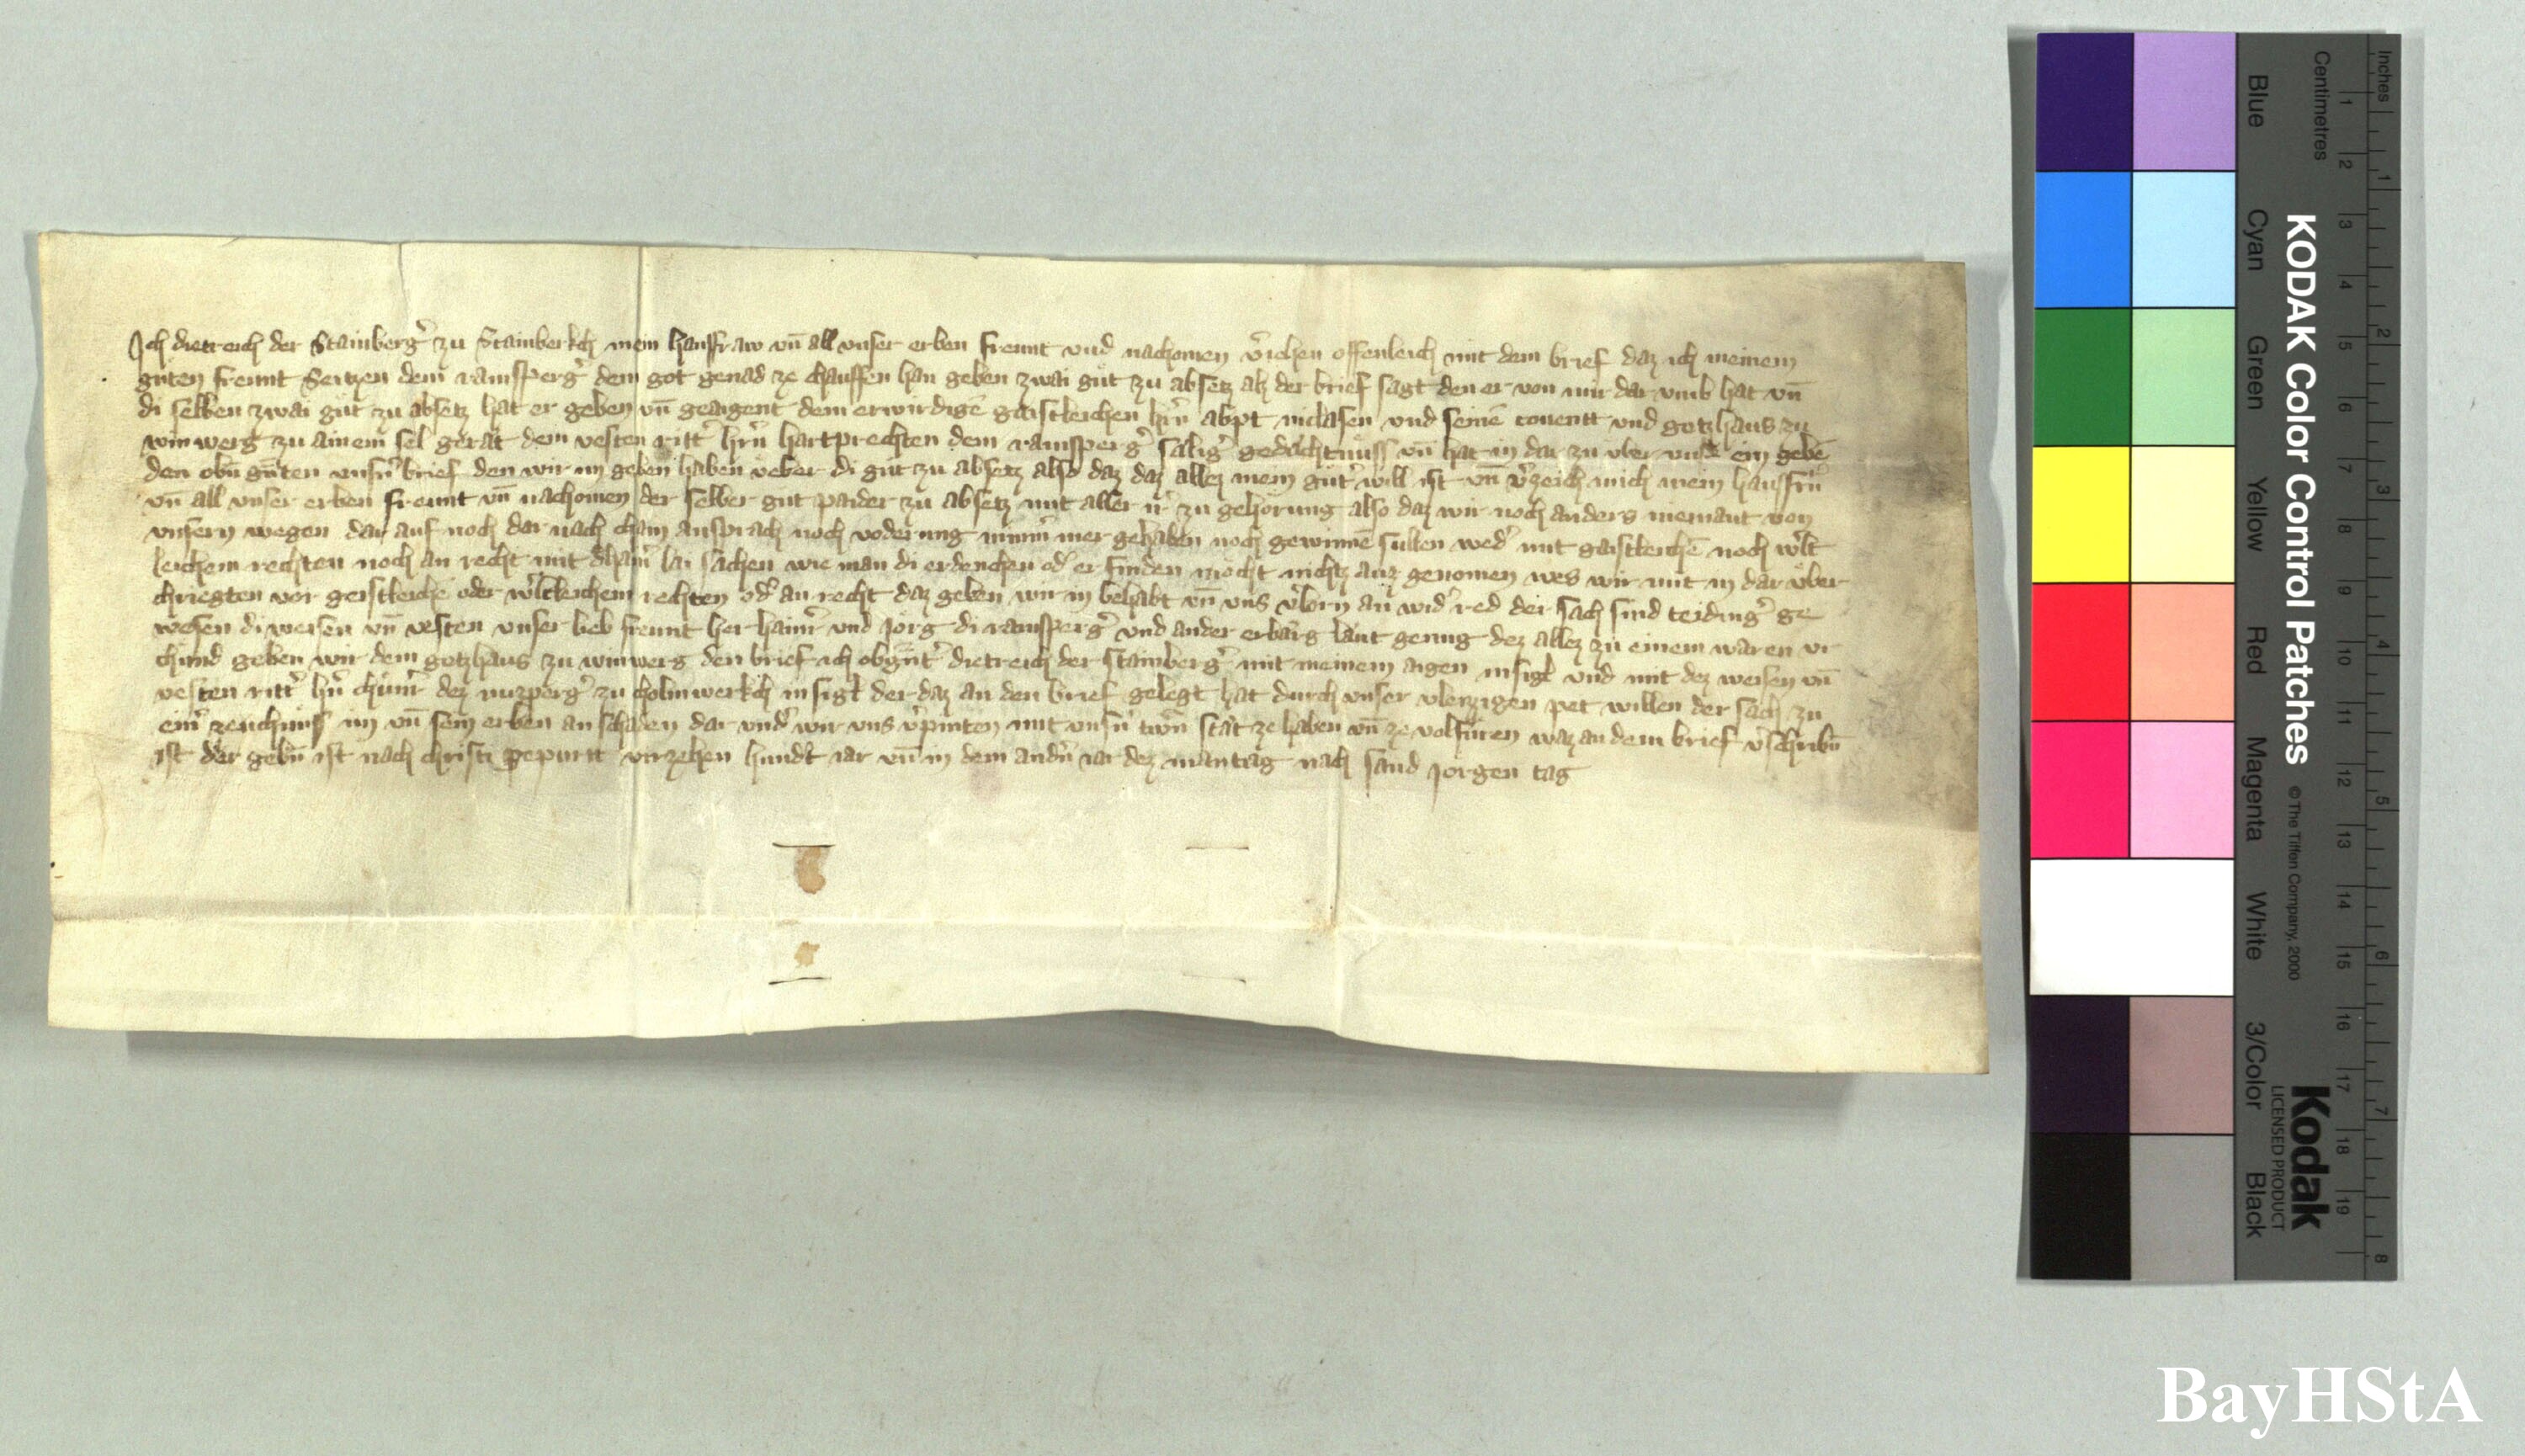 Ich dietreich der Stainberg̉ zu Stainberkch mein hausfraw vn̄ all vnser erben frewnt vnd nachomen v̉iehen offenleich mit dem brief daz ich meinem
guten frewnt Seitzen dem ramsperg̉ dem got genad ze chauffen han geben zwai gut zu absetz alz der brief sagt den er von mir dar vmb hat vn̄
di selben zwai gut zu absetz hat er geben vn̄ geaigent dem erwirdigē gaistleichen hr̄n abpt niclasen vnd seinē conentt vnd gotzhaus zu
winwerg zu ainem sel gerät dem vesten ritt̉ hr̄n hartprechten dem ramsperg̉ sälig̉ gedächtnuss vn̄ hat in dar zu vber ein gebē
den obn̄ guten vnsn̉ brief den wir im geben haben veber di gut zu absetz also daz daz allez mein gut̉ will ist vn̄ v̉zeich mich mein hausfrn̄
vn̄ all vnser erben frewnt vn̄ nachomen der selber gut paider zu absetz mit aller ir̉ zu gehörung also daz wir noch anders niemant von
vnsern wegen dar auf noch dar nach chain ansprach noch voderung nimm̉ mer gehaben noch gewinnē sullen wed̉ mit gaistleichē noch w̉lt
leichem rechten noch an recht mit dhain̉ lai sachen wie man di erdenchen od̉ er finden möcht nichtz auz genomen wes wir mit in dar vber
chriegten vor geistleichē oder w̉ltleichem rechten od̉ an recht daz geben wir in behabt vn̄ vns v̉lorn an wid̉ red der sach sind teiding̉ ge
wesen di weisen vn̄ vesten vnser lieb frewnt her haimr̉ vnd Jörg di ramsperg̉ vnd ander erbärg läut genug dez allez zu einem waren vr
chund geben wir dem gotzhaus zu winwerg den brief ich obgn̄t̉ dietreich der stainberg̉ mit meinem aigen insigl vnd mit dez weisen vn̄
vesten ritt̉ hn̄ chunr̉ dez nuzperg̉ zu cholmwerkch insigl der daz an den brief gelegt hat durch vnser vleizzigen pet willen der sach zu
ein̉ zeuchnuss im vn̄ sein erben an schaden dar vnd̉ wir vns v̉pinten mit vnsn̉ trwn̄ stät ze haben vn̄ ze volfüren waz an dem brief v̉schribn̄
ist der gebn̄ ist nach christi gepurtt virzehen hundt iar vn̄ in dem andn̉ iar dez mantag nach sand Jorgen tag
KODAK Color Control Patches
© The Tiffen Company, 2000
Kodak
LICENSED PRODUCT
Blue Cyan Green Yellow Red Magenta White 3/Color Black
Centimetres 1 2 3 4 5 6 7 8 9 10 11 12 13 14 15 16 17 18 19
Inches 1 2 3 4 5 6 7 8
BayHStA